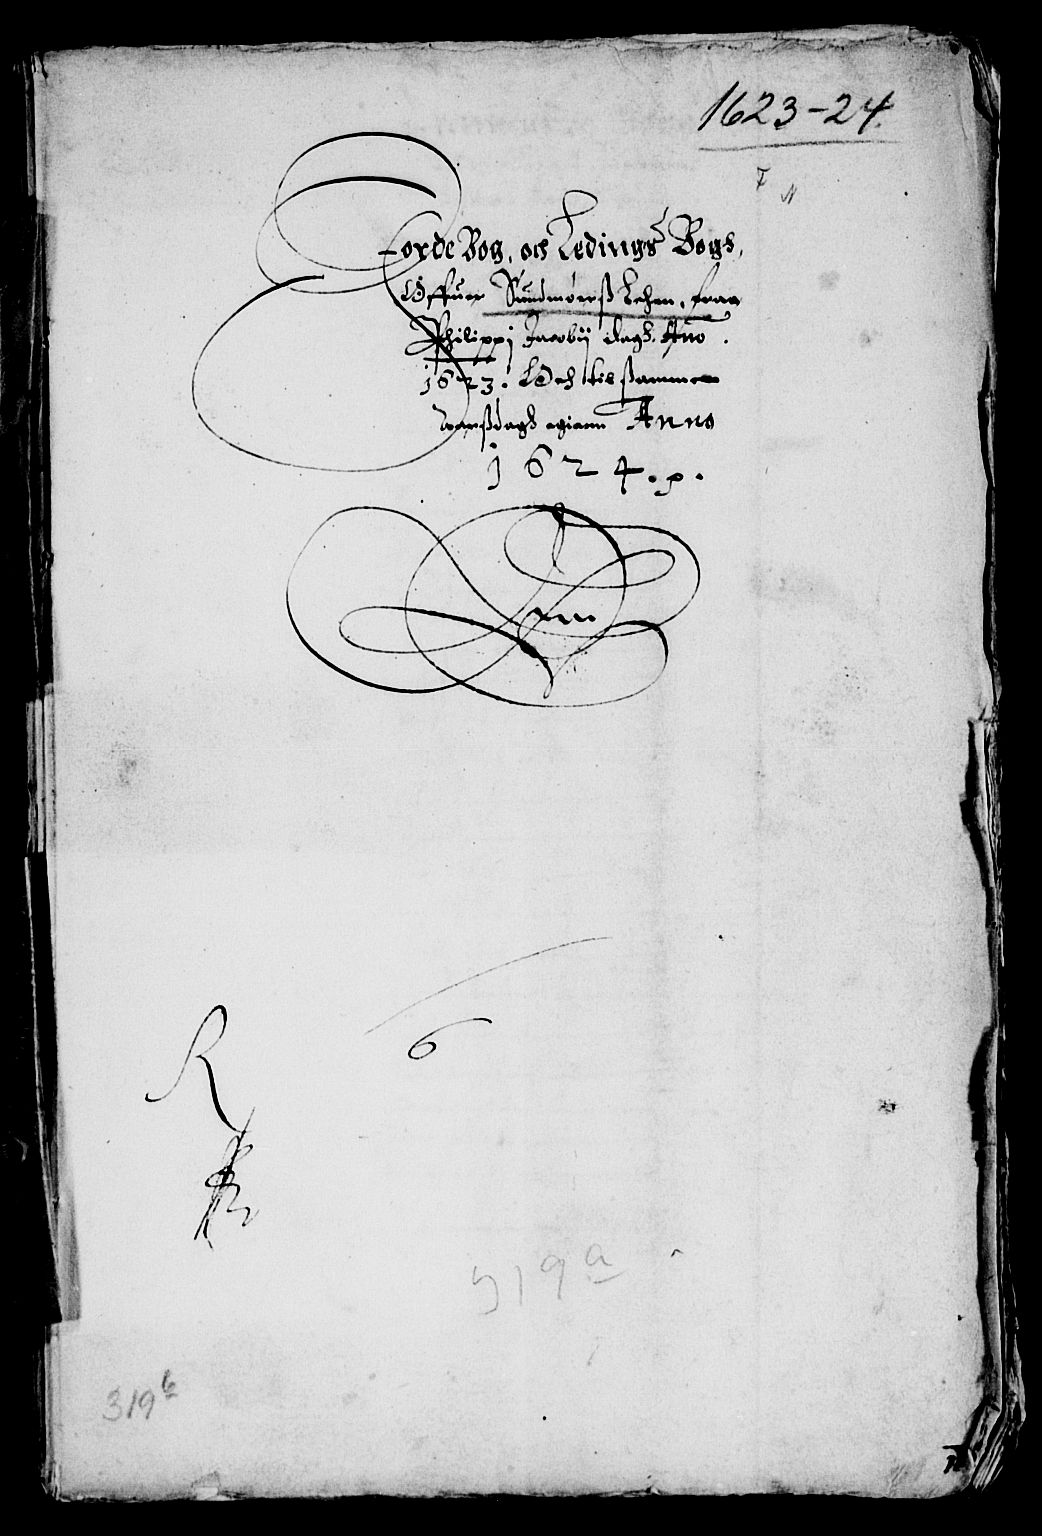 1623-24.
Jorde Bog, och Ledings Bogh,
Offuer Sundmørß Lehen, fraa
Philippi Jacobij dagh. Anno
1623. Och til ßamme
dagh igienn Anno
1624. p.
R
6
319 a
319 b